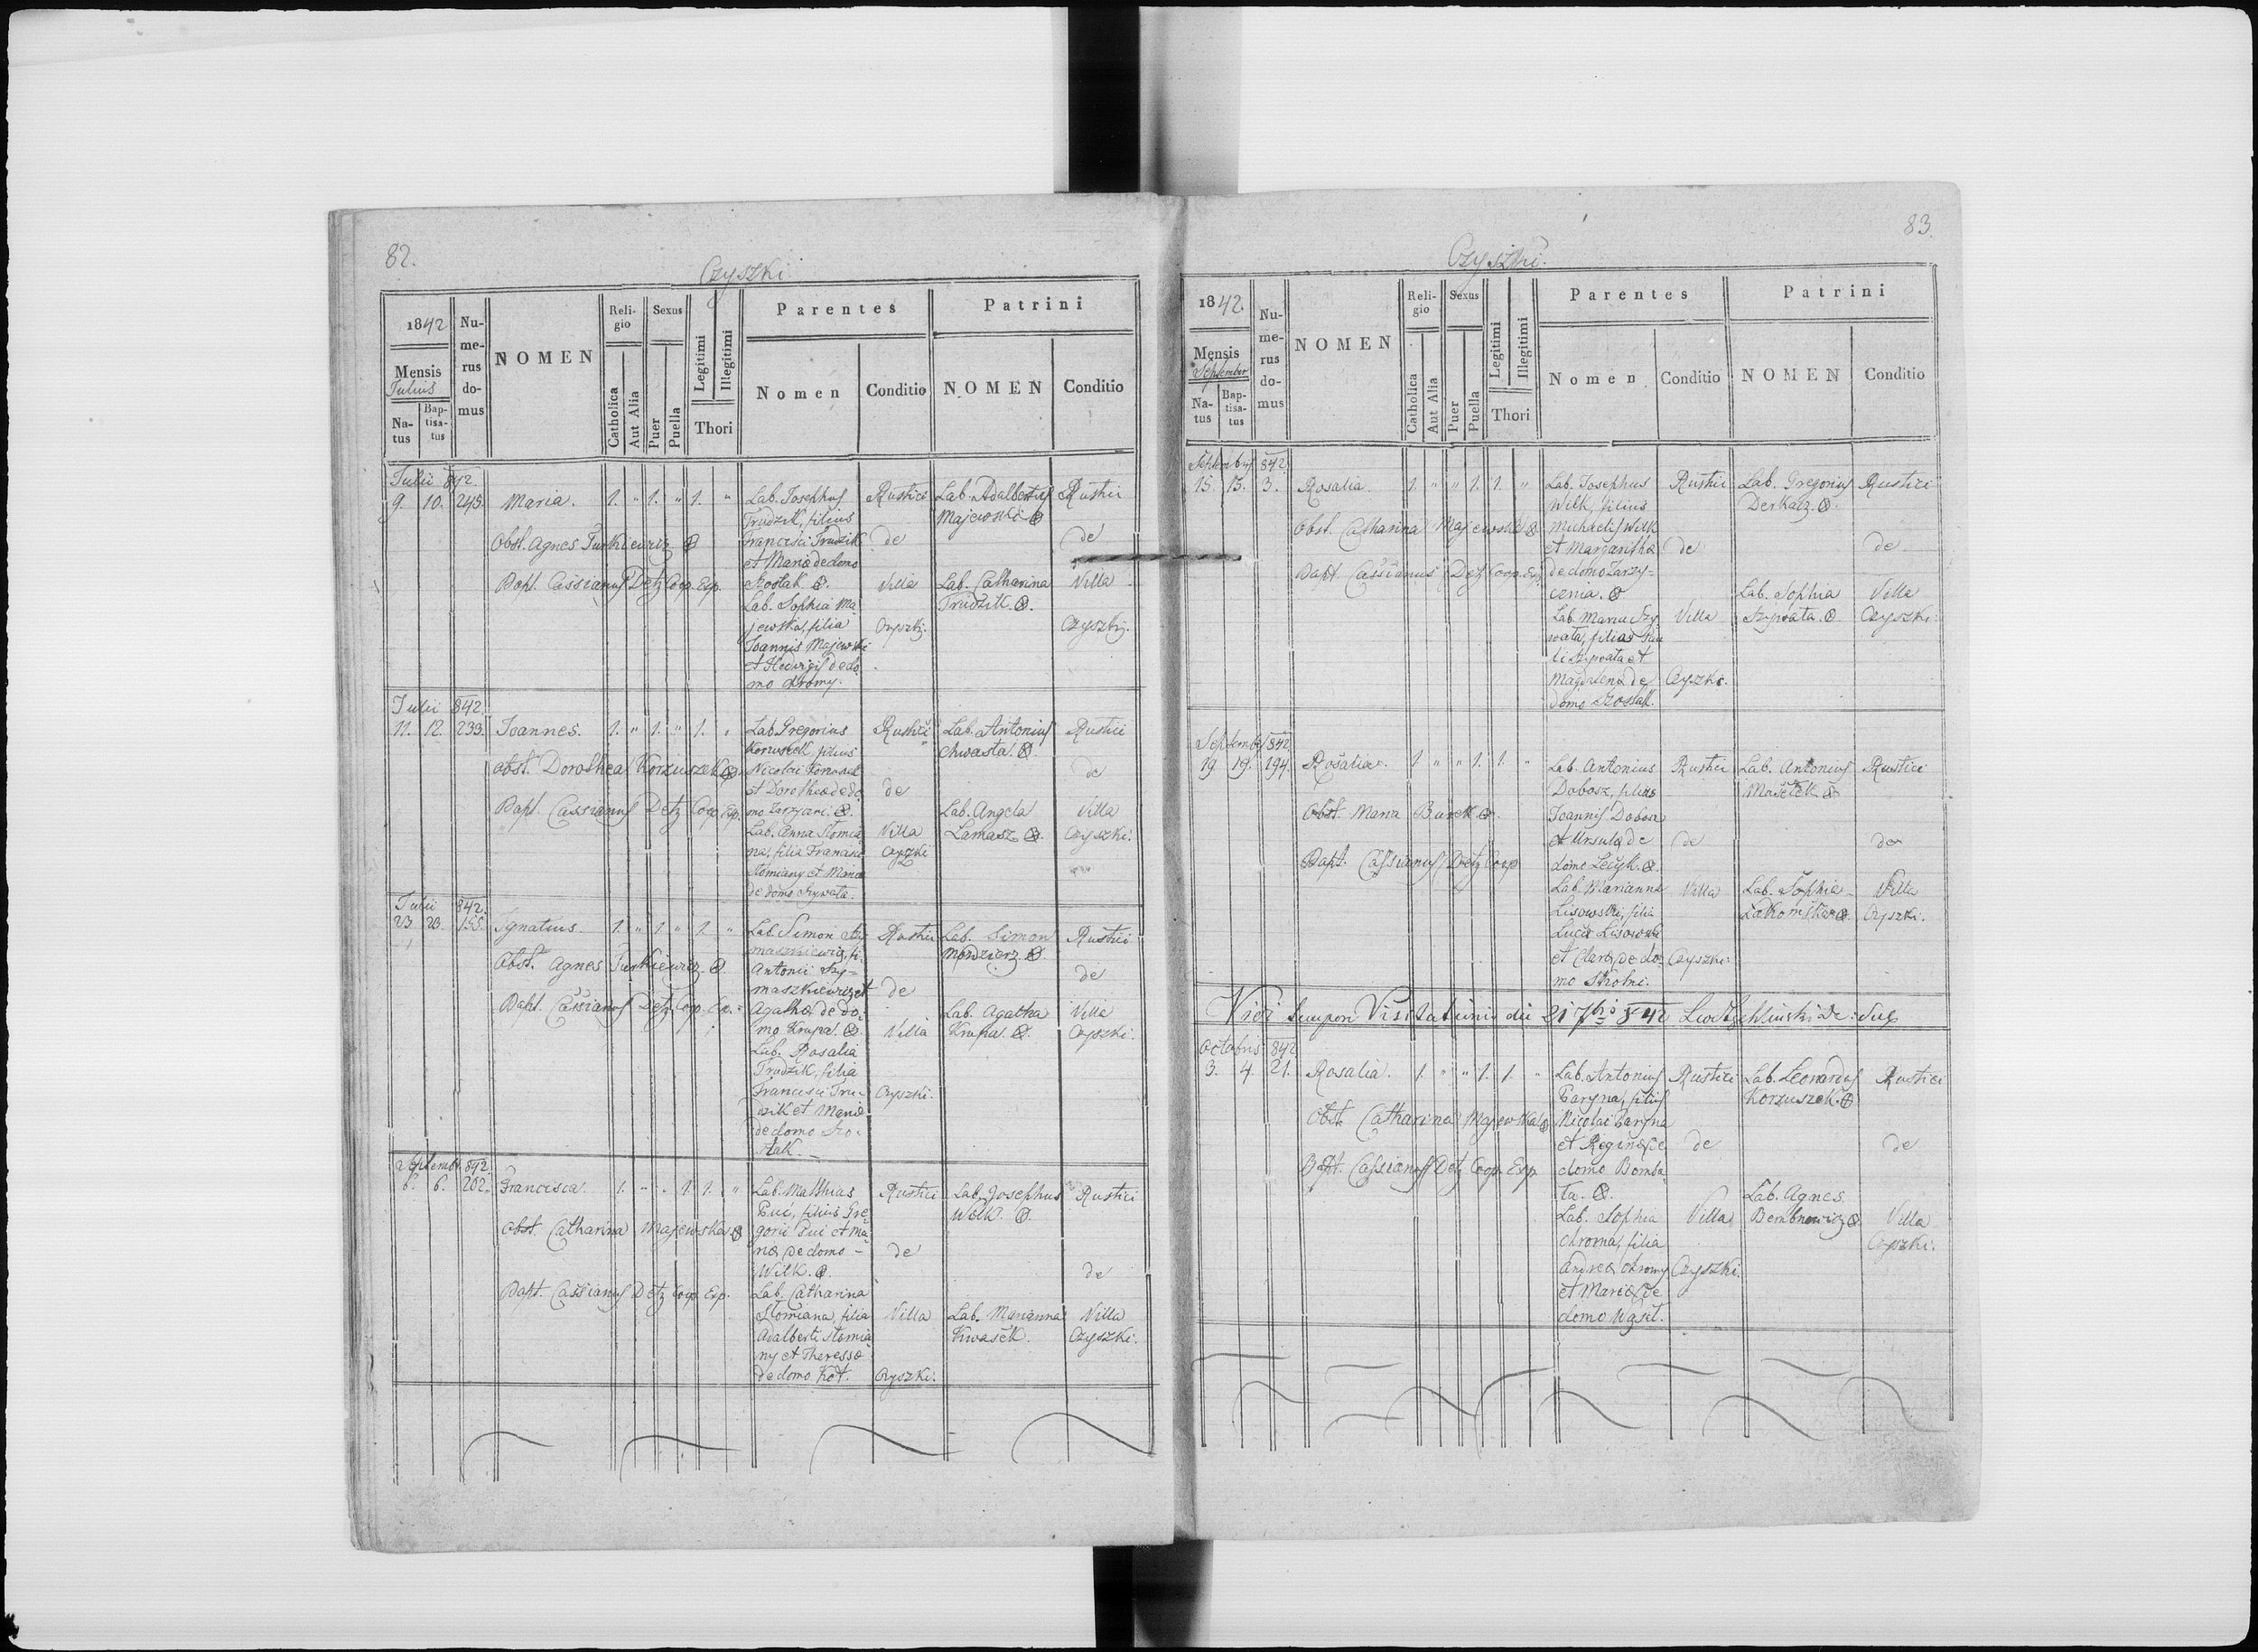 82.
Czyszki.
1842
Mensis
Julius
Natus
Baptisatus
Numerus domus
NOMEN
Religio
Catholica
Aut Alia
Sexus
Puer
Puella
Legitimi
Illegitimi
Thori
Parentes
Nomen
Conditio
Patrini
NOMEN
Conditio
Julii 842.
9. 10. 245. Maria. 1. " 1. " 1. "
Obst. Agnes Turkiewicz
Bapt. Cassianus Detz Coop. Exp.
Lab. Josephus
Trudzik, filius
Francisci Trudzik
et Mariæ de domo
Szostak.
Lab. Sophia Ma-
jewska, filia
Joannis Majewski
et Hedvigis de do-
mo Chromy.
Rustici
de
Villa
Czyszki.
Lab. Adalbertus
Majewski
Lab. Catharina
Trudzik.
Rustici
de
Villa
Czyszki.
Julii 842.
11. 12. 239. Joannes. 1. " 1. " 1. "
Obst. Dorothea Korzuszek
Bapt. Cassianus Detz Coop. Exp.
Lab. Gregorius
Korzuszek, filius
Nicolai Korzuszek
et Dorotheæ de do-
Lab. Anna Słomia-
na, filia Francisci
Słomiany et Mariæ
de domo Szpyrata.
Rustici
de
Villa
Czyszki
Lab. Antonius
Chwasta.
Lab. Angela
Lamasz
Rustici
de
Villa
Czyszki.
Julii 842.
23 23. 155. Ignatius 1. " 1. " 1. "
Obst. Agnes Turkiewicz
Bapt. Cassianus Detz Coop. Ex.
Lab. Simon Szy-
maszkiewicz, fi.
Antonii Szy-
maszkiewicz et
Agathæ de do-
mo Krupa.
Lab. Rosalia
Trudzik, filia
Francisci Tru-
dzik et Mariæ
de domo Szo-
stak.
Rustici
de
Villa
Czyszki.
Lab. Simon
Lab. Agatha
Krupa.
Rustici
de
Villa
Czyszki.
Septemb. 842.
6. 6. 262. Francisca. 1. " " 1. 1. "
Obst. Catharina Majewska
Bapt. Cassianus Detz Coop. Exp.
Lab. Matthias
Puć, filius Gre-
gorii Puć et Ma-
riæ de domo
Wilk.
Lab. Catharina
Słomiana, filia
Adalberti Słomia-
ny et Theressæ
de domo Kot.
Rustici
de
Villa
Czyszki.
Lab. Josephus
Wilk.
Lab. Marianna
Kwaśek.
Rustici
de
Villa
Czyszki.
83.
Czyszki.
1842.
Mensis
September
Natus
Baptisatus
Numerus domus
NOMEN
Religio
Catholica
Aut Alia
Sexus
Puer
Puella
Legitimi
Illegitimi
Thori
Parentes
Nomen
Conditio
Patrini
NOMEN
Conditio
Septembris 842.
15. 15. 3. Rosalia. 1. " " 1. 1. "
Obst. Catharina Majewska
Bapt. Cassianus Detz Coop. Exp.
Lab. Josephus
Wilk, filius
Michaelis Wilk
et Margarithæ
de domo Zarzy-
Lab. Maria Szpy-
Magdalenæ de
domo Szostak.
Rustici
de
Villa
Czyszki.
Lab. Gregorius
Derkacz.
Lab. Sophia
Szpyrata.
Rustici
de
Villa
Czyszki.
Septembris 842
19 19. 194. Rosalia. 1 " " 1. 1. "
Obst. Maria Burek
Bapt. Cassianus Detz Coop
Lab. Antonius
Dobosz, filius
Joannis Dobosz
et Ursulæ de
Lab. Marianna
Lisowska, filia
Lucæ Lisowski
et Claræ de do-
mo Skolni.
Rustici
de
Villa
Czyszki.
Lab. Antonius
Lab. Sophia
Rustici
de
Villa
Czyszki.
Vidi tempore Visitationis die 21 7bris 842
Octobris 842
3. 4. 21. Rosalia. 1. " " 1. 1. "
Obst. Catharina Majewska
Bapt. Cassianus Detz Coop. Exp
Lab. Antonius
Paryna, filius
Nicolai Paryna
et Reginæ de
domo Bomba-
ła.
Lab. Sophia
Chroma, filia
Andreæ Chromy
et Mariæ de
domo Wąsil.
Rustici
de
Villa
Czyszki.
Lab. Leonardus
Korzuszek.
Lab. Agnes
Bembnowicz
Rustici
de
Villa
Czyszki.